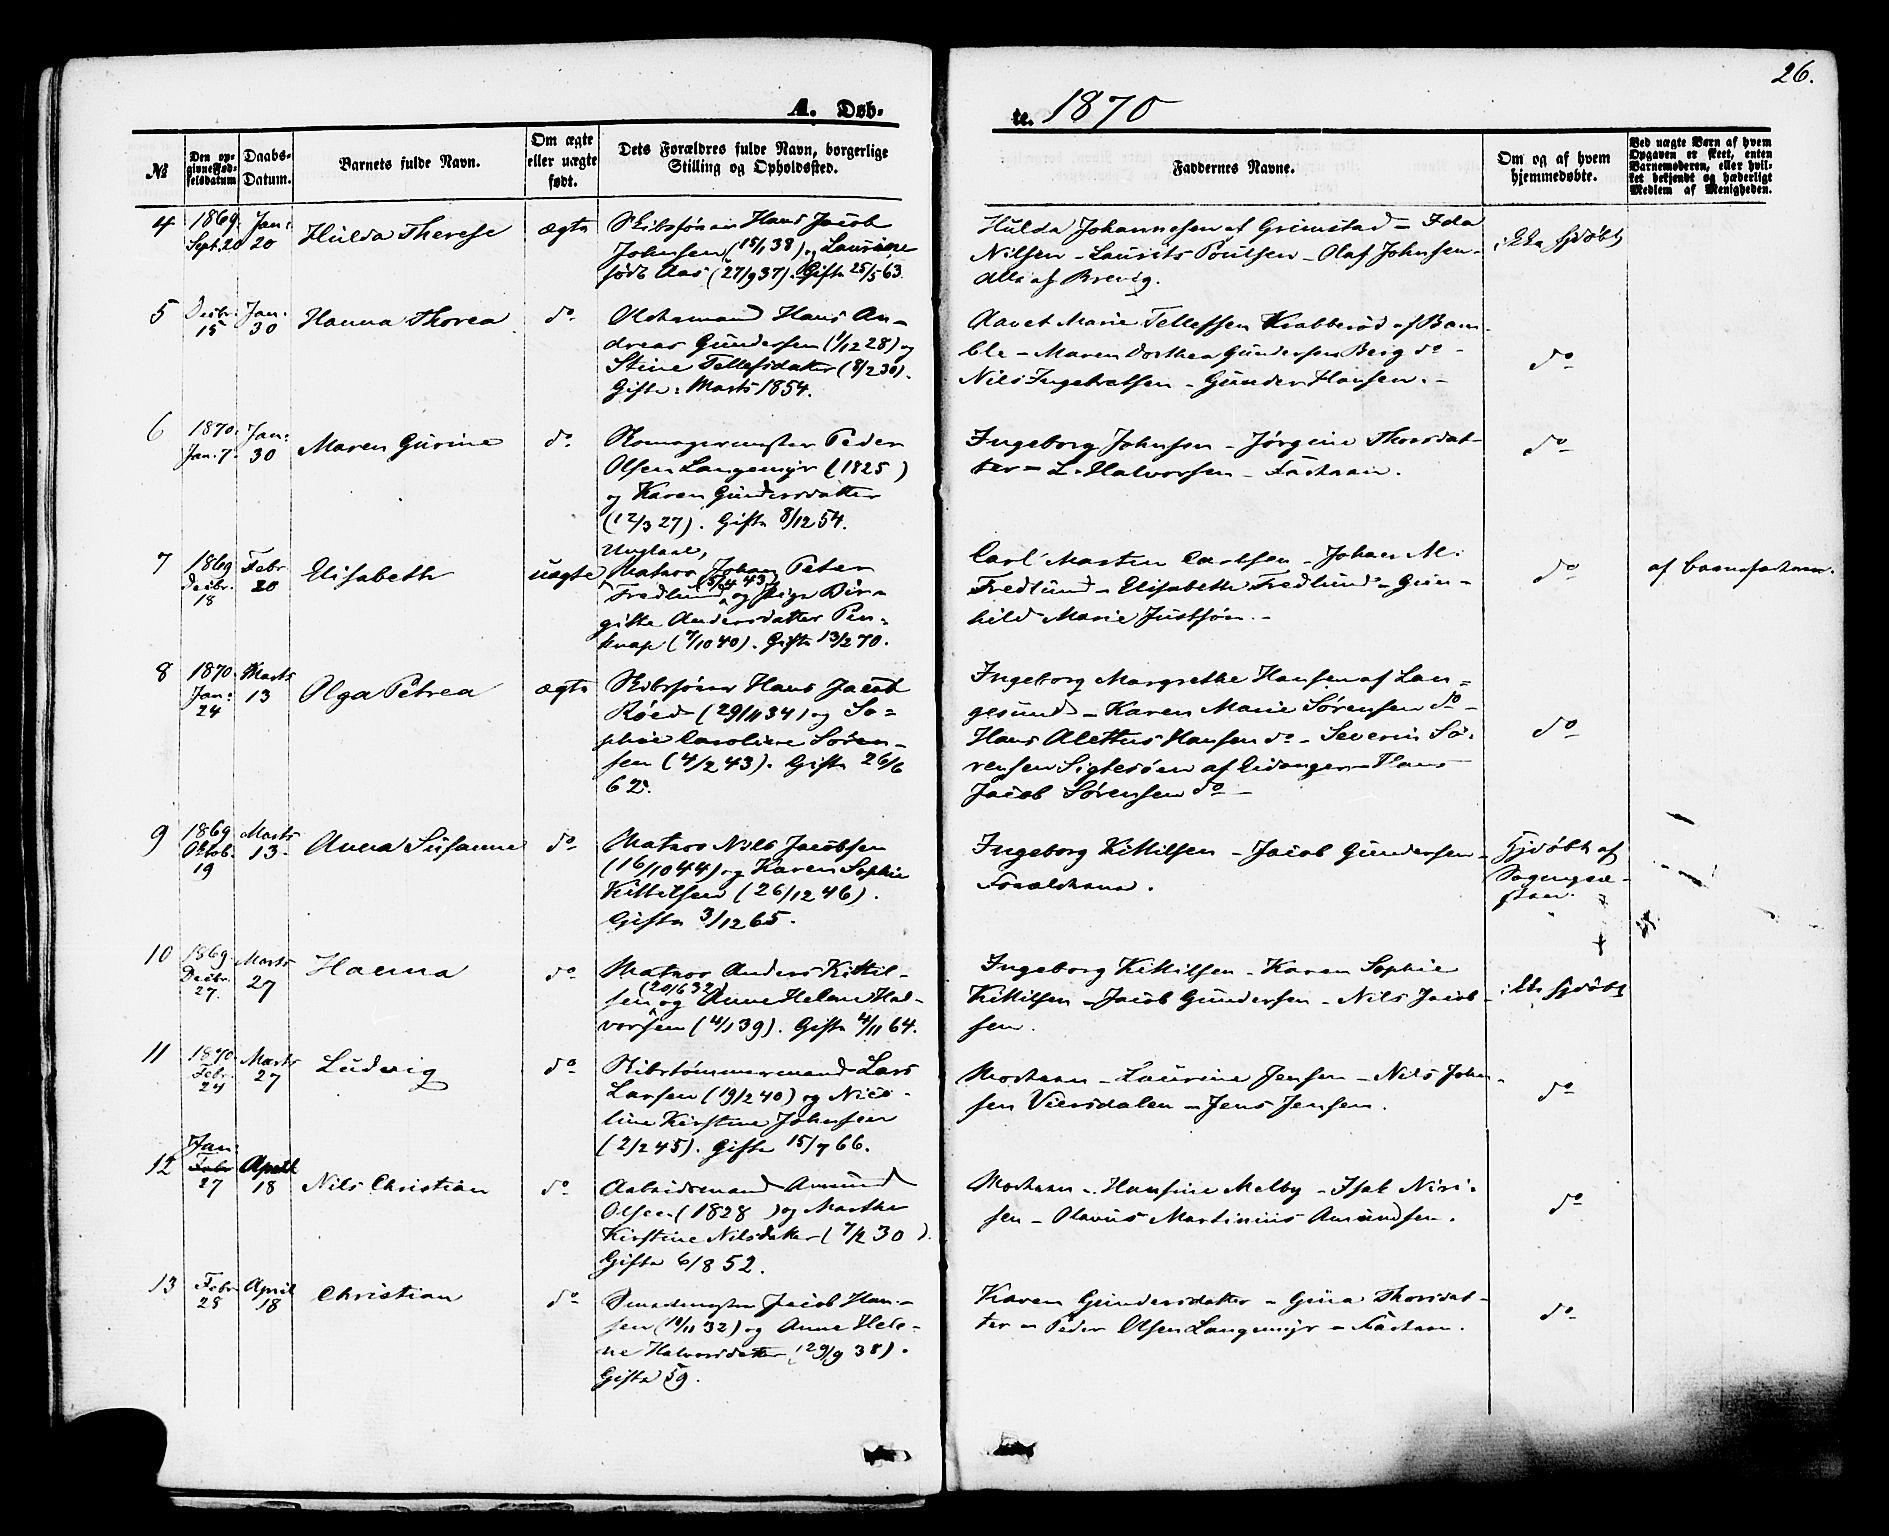 26.
A. Døb-
te. 1870
№
Den opgivne Fødselsdatum
Daabs-Datum.
Barnets fulde Navn.
Om ægte eller uægte født.
Dets Forældres fulde Navn, borgerlige Stilling og Opholdssted.
Faddernes Navne.
Om og af hvem hjemmedøbte.
Ved uægte Barn af hvem Opgaven er skeet, enten Barnemoderen, eller hvilket bekjendt og hæderligt Medlem af Menigheden.
4 1869. Sept. 20 Jan: 20 Hulda Therese ægte
Skibsfører Hans Jacob
Johnsen (15/1 38) og Laurine
født Aas (27/9 37). Gifte 25/5 63.
Hulda Johannesen af Grimstad – Ida
Nilsen – Laurits Poulsen – Olaf Johnsen –
Alle af Brevig.
ikke hjdøbt
5 Decbr. 15 Jan. 30 Hanna Thorea do
Hans An-
dreas Gundersen (1/12 28) og
Stine Tellefsdatter (8/2 30).
Gifte: Marts 1854.
Aavet Marie Tellefsen Krabberød af Bam-
ble – Maren Dorthea Gundersen Berg do –
Nils Ingebretsen – Gunder Hansen. –
do
6 1870. Jan. 7. Jan: 30 Maren Gurine do
Peder
Olsen Langemyr (1825)
og Karen Gundersdatter
(12/3 27). Gifte 8/12 54.
Ingeborg Johnsen – Jørgine Thorsdat-
ter – L. Halvorsen – Faderen.
do
7 1869 Decbr. 18 Febr 20 Elisabeth uægte
Ungkarl,
Matros Johan Peter
Fredlund (5/4 43) og Pige Bir-
gitte Andersdatter Pin-
knap (7/10 40). Gifte 13/2 70.
Carl Martin Carlsen – Johan M.
Fredlund – Elisabeth Fredlund – Gun-
hild Marie Justsøn. –
do
af Barnefaderen.
8 1870. Jan: 24 Marts 13 Olga Petrea ægte
Skibsfører Hans Jacob
Røed (29/11 34) og So-
phie Caroline Søren-
sen (4/2 43). Gifte 26/6
62.
Ingeborg Margrethe Hansen af Lan-
gesund – Karen Marie Sørensen do –
Hans Alettus Hansen do – Severin Sø-
rensen Sigtesøen af Eidanger – Hans
Jacob Sørensen do –
do
9 1869. Oktob. 19 Marts 13 Anna Susanne do
Matros Nils Jacobsen
(16/10 44) og Karen Sophie
Kittilsen (26/12 46).
Gifte 3/12 65.
Ingeborg Kittilsen – Jacob Gundersen –
Forældrene.
Hjdøbt af
Sognepræ-
sten.
10 1869. Decbr. 27. Marts 27 Hanna do
Matros Anders Kittil-
sen (20/6 32) og Anne Helene Hal-
vorsen (4/1 39). Gifte 4/11 64.
Ingeborg Kittilsen – Karen Sophie
Kittilsen – Jacob Gundersen – Nils Jacob-
sen.
ikke hjdøbt
11 1870. Febr. 24 Marts 27 Ludvig do
Skibstømmermand Lars
Larsen (19/2 40) og Nico-
line Kirstine Johnsen
(2/2 45). Gifte 15/7 66.
Moderen – Laurine Jensen – Nils John-
sen Viersdalen – Jens Jensen.
do
12 Jan: Febr 27 April 18 Nils Christian do
Arbeidsmand Amund
Olsen (1828 ) og Marthe
Kirstine Nilsdatter (7/2 30 ).
Gifte 6/8 52.
Moderen – Hansine Melby – Isak Niri-
sen – Olavus Martinius Amundsen.
do
13 Febr 28 April 18 Christian do
Smedmester Jacob Han-
sen (19/11 32) og Anne Hele-
ne Halvorsdatter (29/9 38).
Gifte 59.
Karen Gundersdatter – Gina Thorsdat-
ter – Peder Olsen Langemyr – Faderen.
do